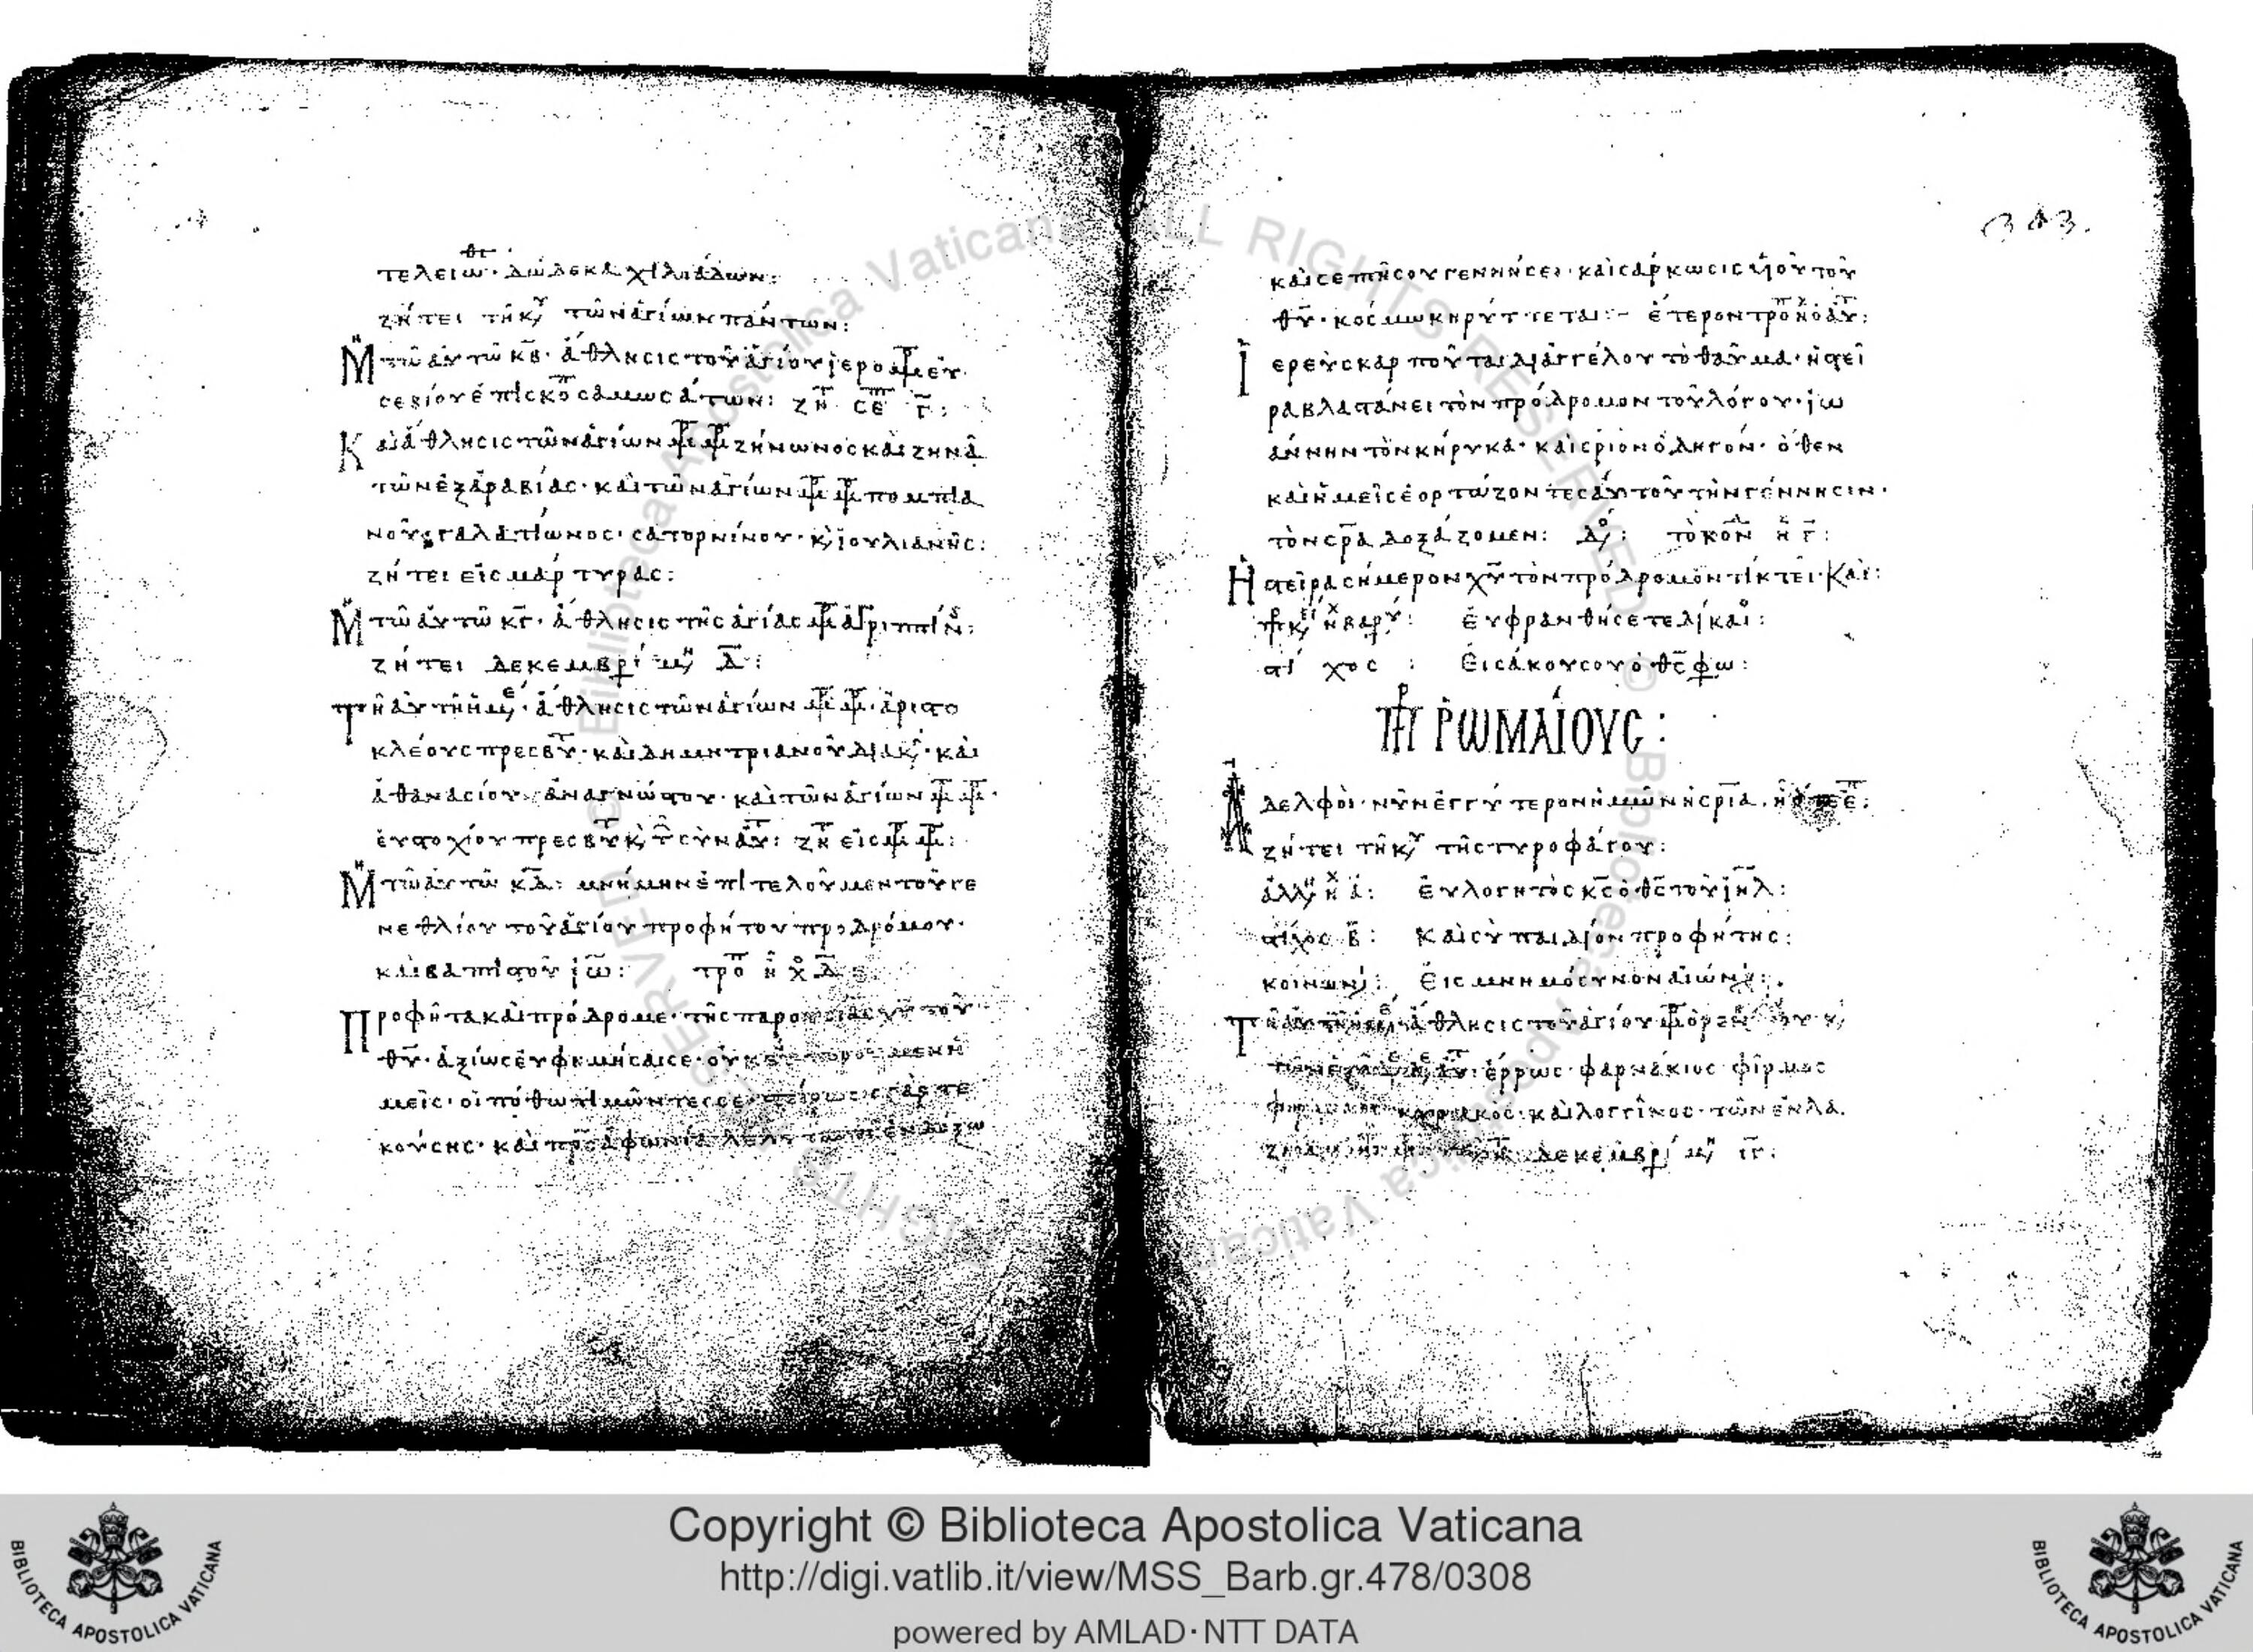 τελειωθε · δώδεκα χιλιάδων:
ζήτει τῆ κυ τῶν ἁγίων πάντων:
Μη τῶ αὐτῶ κβ · ἄθλησις τοῦ ἁγίου ἱερομρ εὐ
σεβίου ἐπισκο σαμωσάτων: ζητ σεπ γ:
Καὶ ἄθλησις τῶν ἁγίων μρ μρ ζήνωνος καὶ ζηνᾶ
τῶν ἐξ ἀραβίας · καὶ τῶν ἁγίων μρ μρ πομπια
νοῦ, γαλατίωνος · σατορνίνου · κ, ἰουλιανῆς:
ζήτει εἰς μάρτυρας:
Μη τῶ αὐτῶ κγ · ἄθλησις τῆς ἁγίας μρ ἀγριππίν:
ζήτει δεκεμβρί μη λ:
Τῆ αὐτῆ ἡμε · ἄθλησις τῶν ἁγίων μρ μρ · ἀριστο
κλέους πρεσβυτ · καὶ δημητριανοῦ διακ · καὶ
ἀθανασίου ἀναγνώστου · καὶ τῶν ἁγίων μρ μρ ·
εὐστοχίου πρεσβυτ κ, τ σὺν αυτ: ζητ εἰς μρ μρ:
Μη τῶ αὐτῶ κδ: μνήμην ἐπιτελοῦμεν τοῦ γε
νεθλίου τοῦ ἁγίου προφήτου προδρόμου ·
καὶ βαπτιστοῦ ἰω: τροπ ἦχο δ
Προφῆτα καὶ πρόδρομε · τῆς παρουσίας χυ τοῦ
θυ · ἀξίως εὐφημῆσαί σε · οὐκ εὐποροῦμεν ἡ
μεῖς · οἱ πόθω τιμῶντες σε · στείρωσις γὰρ τε
κούσης · καὶ προς ἀφωνία λέλυται τῆ ἐνδόξω
καὶ σεπτῆ σου γεννήσει · καὶ σάρκωσις υἱοῦ τοῦ
θυ · κόσμω κηρύττεται: – ἕτερον τροπ ηχο δ αυτ:
Ἱερεὺς καρποῦται δι' ἀγγέλου τὸ θαῦμα · ἡ στεῖ
ρα βλαστάνει τὸν πρόδρομον τοῦ λόγου · ἰω
άννην τὸν κήρυκα · καὶ σριον ὁδηγόν · ὅθεν
καὶ ἡμεῖς ἑορτάζοντες αὐτοῦ τὴν γέννησιν ·
τὸν σρα δοξάζομεν: δο: τὸ κον ηχ γ:
Ἡ στεῖρα σήμερον χυ τὸν πρόδρομον τίκτει · Και:
ηχ βαρυ: Εὐφρανθήσεται δίκαιο:
στίχος : Εἰσάκουσον ὁ θς φω:
Πρ ΡΩΜΑΙΟΥΣ:
Ἀδελφοὶ · νῦν ἐγγύτερον ἡμῶν ἡ σρια · ἢ ὅτε επ:
ζήτει τῆ κυ τῆς τυροφάγου:
ἀλλη ηχ ά: Εὐλογητὸς κς ὁ θς τοῦ ιηλ:
στίχος β: Καὶ σὺ παιδίον προφήτης:
κοινωνι: Εἰς μνημόσυνον αἰώνι:
Τῆ αὐτῆ ἡμε ἄθλησις τοῦ ἁγίου μρ ὀρεν
ἔρρως · φαρνάκιος · φίρμος
κυριακος · καὶ λογγῖνος · τῶν ἐν λα
δεκεμβρί μη ιγ:
343.
Copyright © Biblioteca Apostolica Vaticana
http://digi.vatlib.it/view/MSS_Barb.gr.478/0308
powered by AMLAD·NTT DATA
BIBLIOTECA APOSTOLICA VATICANA
BIBLIOTECA APOSTOLICA VATICANA